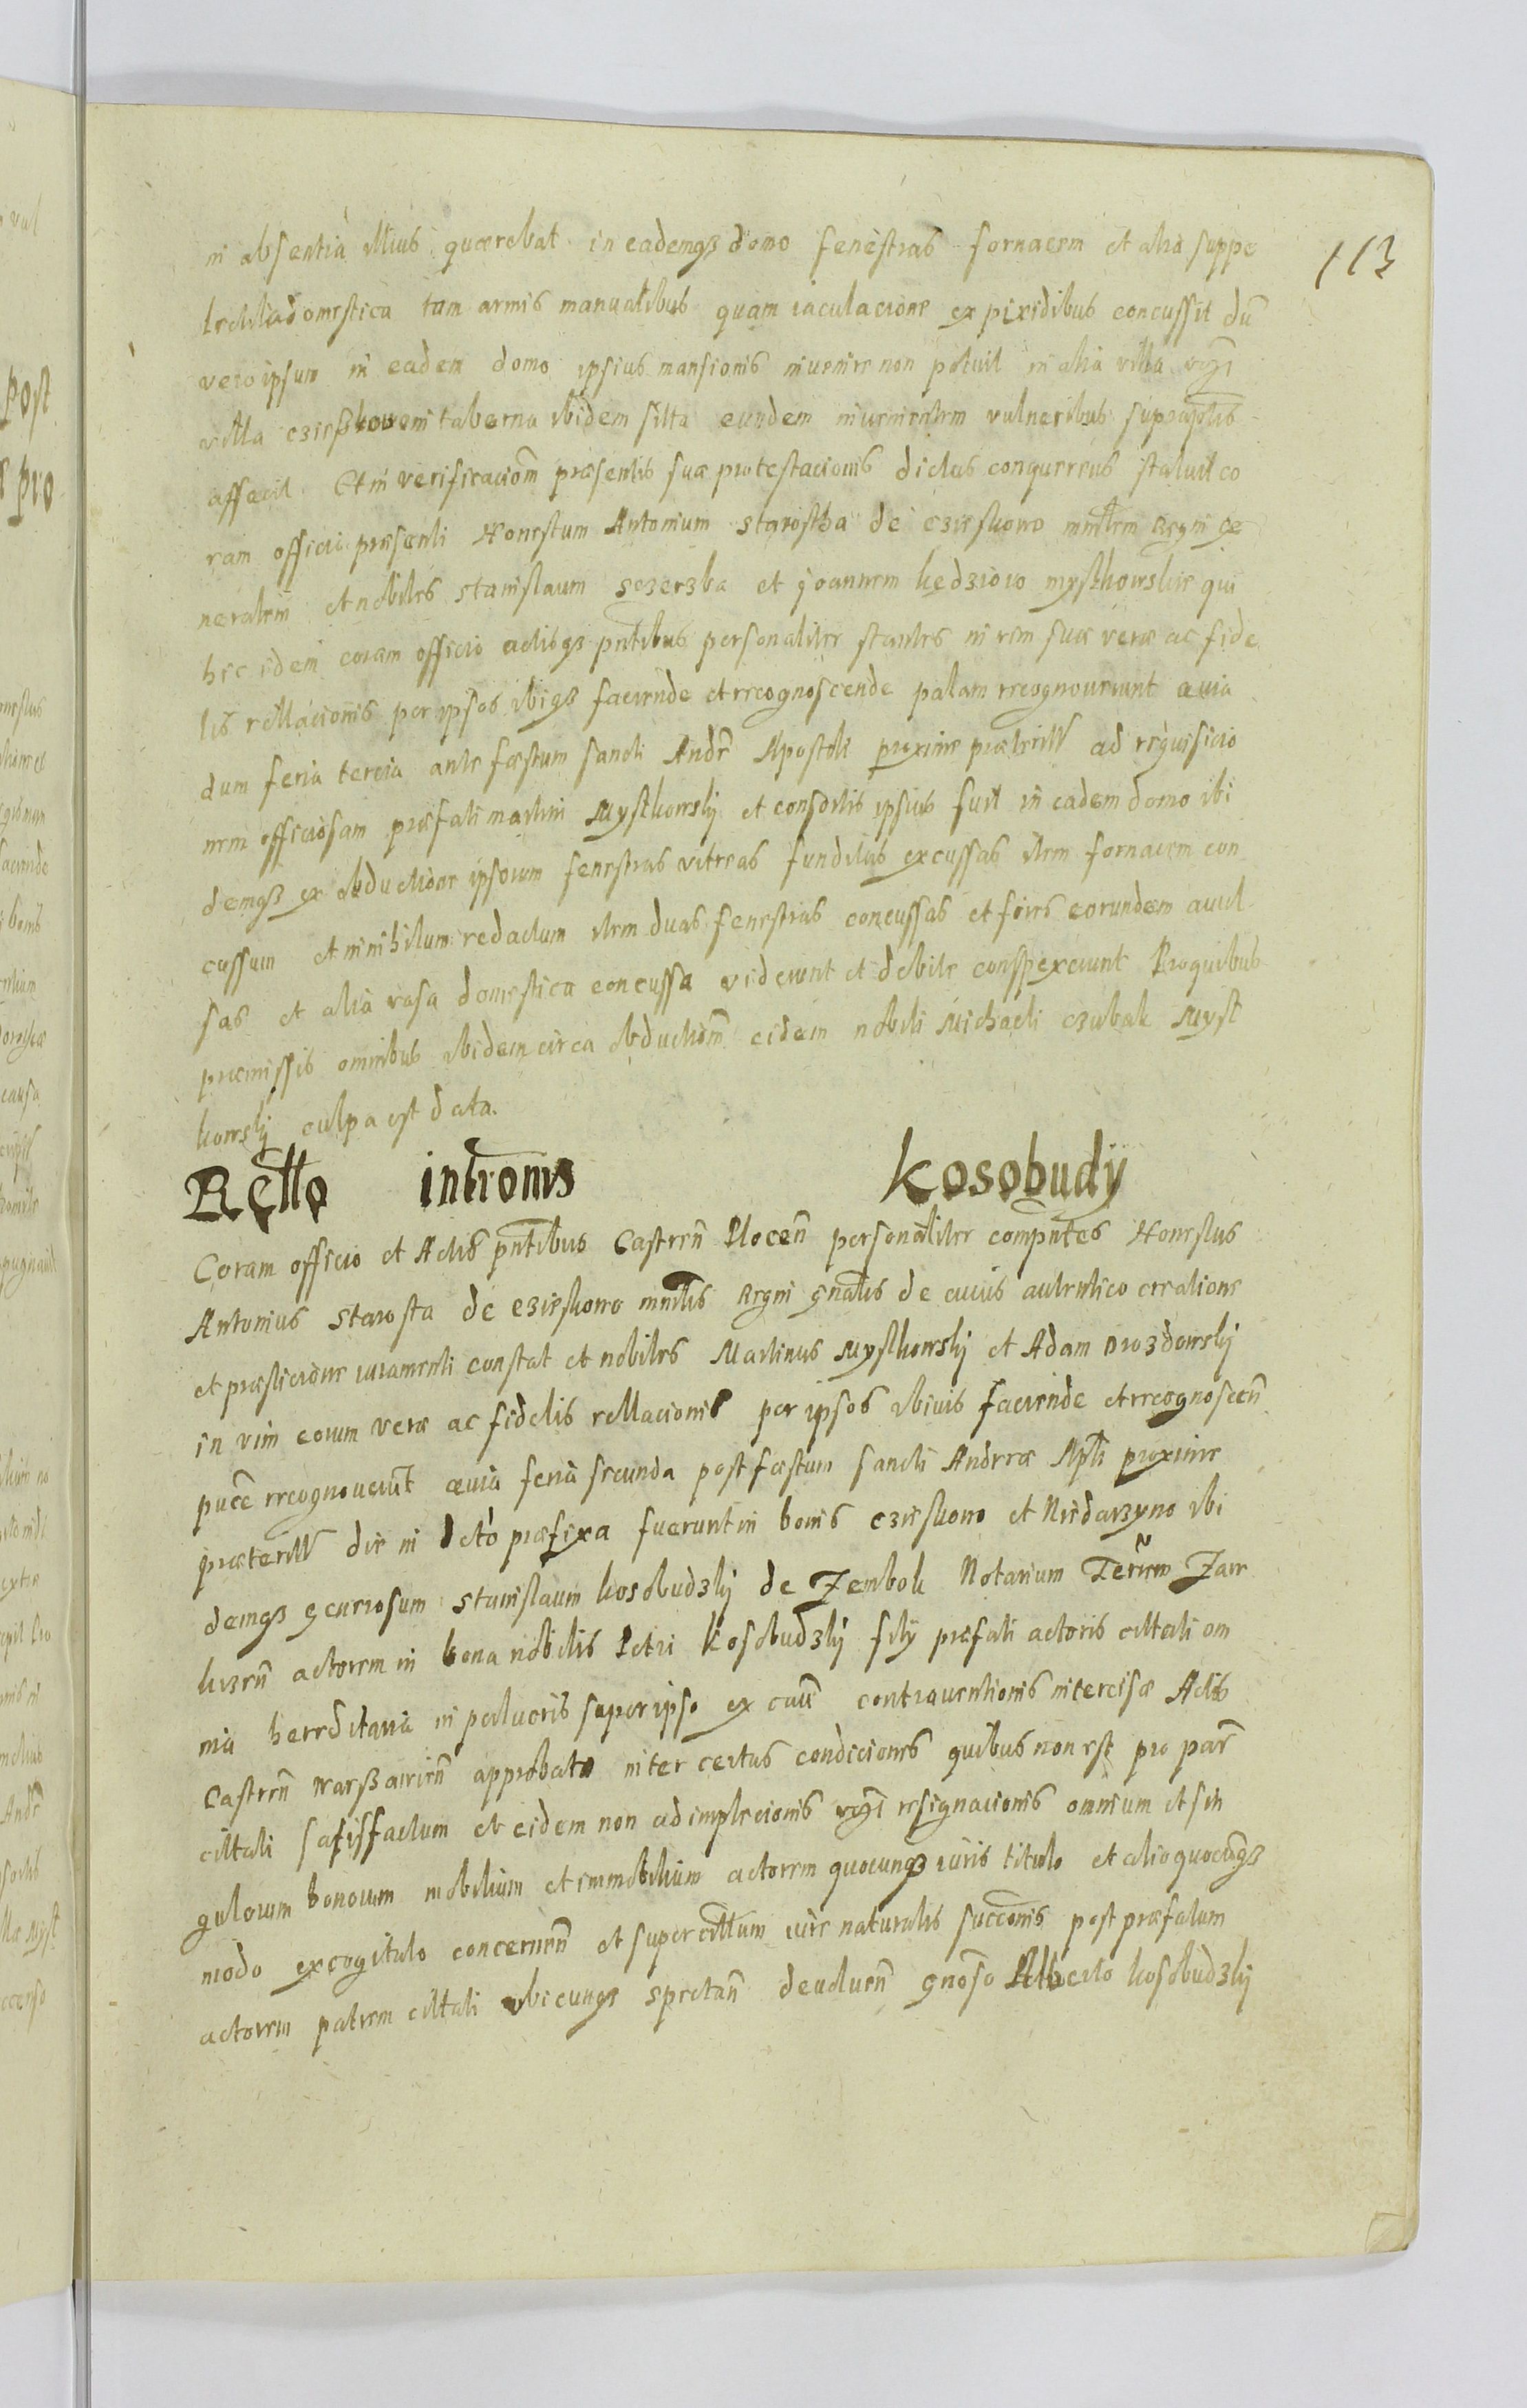 113
in absentia illius quaerebat in eademqз domo fenestras fornacem et alia suppe
lectilia domestica tam armis manualibus quam iaculacione ex pixidibus concussit dū
vero ipsum in eadem domo ipsius mansionis invenire non potuit in alia villa
villa cziesskowo in taberna ibidem sitta eundem invenientem vulneribus
affecit Et in verificaciom̄ praesentis suae protestacionis dictus conquerens statuit co
ram officio praesenti Honestum Antonium Starostha de czieskowo mnr̄lem Regni ge
neralem et nobiles Stanislaum et Joannem kedziovo mysthowskie qui
hic idem coram officio actisqз pntibus personaliter stantes in vim suae verae ac fide
lis rellacionis per ipsos ibiqз faciende et recognoscende palam recognoverunt quia
dum feria tercia ante festum sancti Andr̄ Apostoli proxime praeterill ad requisicio
nem officiosam praefati martini Mysthowskj et consortis ipsius fuit in eadem domo ibi
demqз ex obductione ipsorum fenestras vitreas funditus excussas item fornacem con
cussum et in nihilum redactum item duas fenestras concussas et fores eorundem avul
sas et alia vasa domestica concussa viderunt et debite conspexerunt Pro quibus
praemissis omnibus ibidem circa obductiōm eidem nobili Michaeli czubak Myst
kowskij culpa est data.
Rello intromis Kosobudÿ
Coram officio et Actis pntibus Castren̄ Plocen̄ personaliter compntes Honestus
Antonius Starosta de czieskowo mnrlis Regni gn̄alis de cuius autentico creatione
et praesticione iuramenti constat et nobiles Martinus Mysthowskj et Adam Drozdowskj
in vim eorum verae ac fidelis rellacionis per ipsos ibivis faciende et recognoscen̄
puc̄e recognoverūt quia feria secunda post festum sancti Andreae Apl̄i proxime
praeterill die in Acto praefixa fuerunt in bonis czieskowo et Niedarzyno ibi
demqз generosum Stanislaum kosobudzkij de Zembok Notarium Terrm̄ Zaw
krzen̄ actorem in bona nobilis Petri Kosobudzkij filij praefati actoris cittati om
nia hereditaria in perlucris super ipso ex cau̅ contraventionis intercisae Actis
Castren̄ Warßavien̄ approbatae inter certas condiciones quibus non est pro par̄
cittati satisfactum et eidem non adimplecionis resignacionis omnium et sin
gulorum bonorum mobilium et immobilium actorem quocunqз iuris titulo et alio quocūqз
modo excogitato concernen̄ et super cittatum iure naturalis succonis post praefatum
actorem patrem cittati ubicunqз spectan̄ devoluen̄ gnōso Alberto kosobudzkij